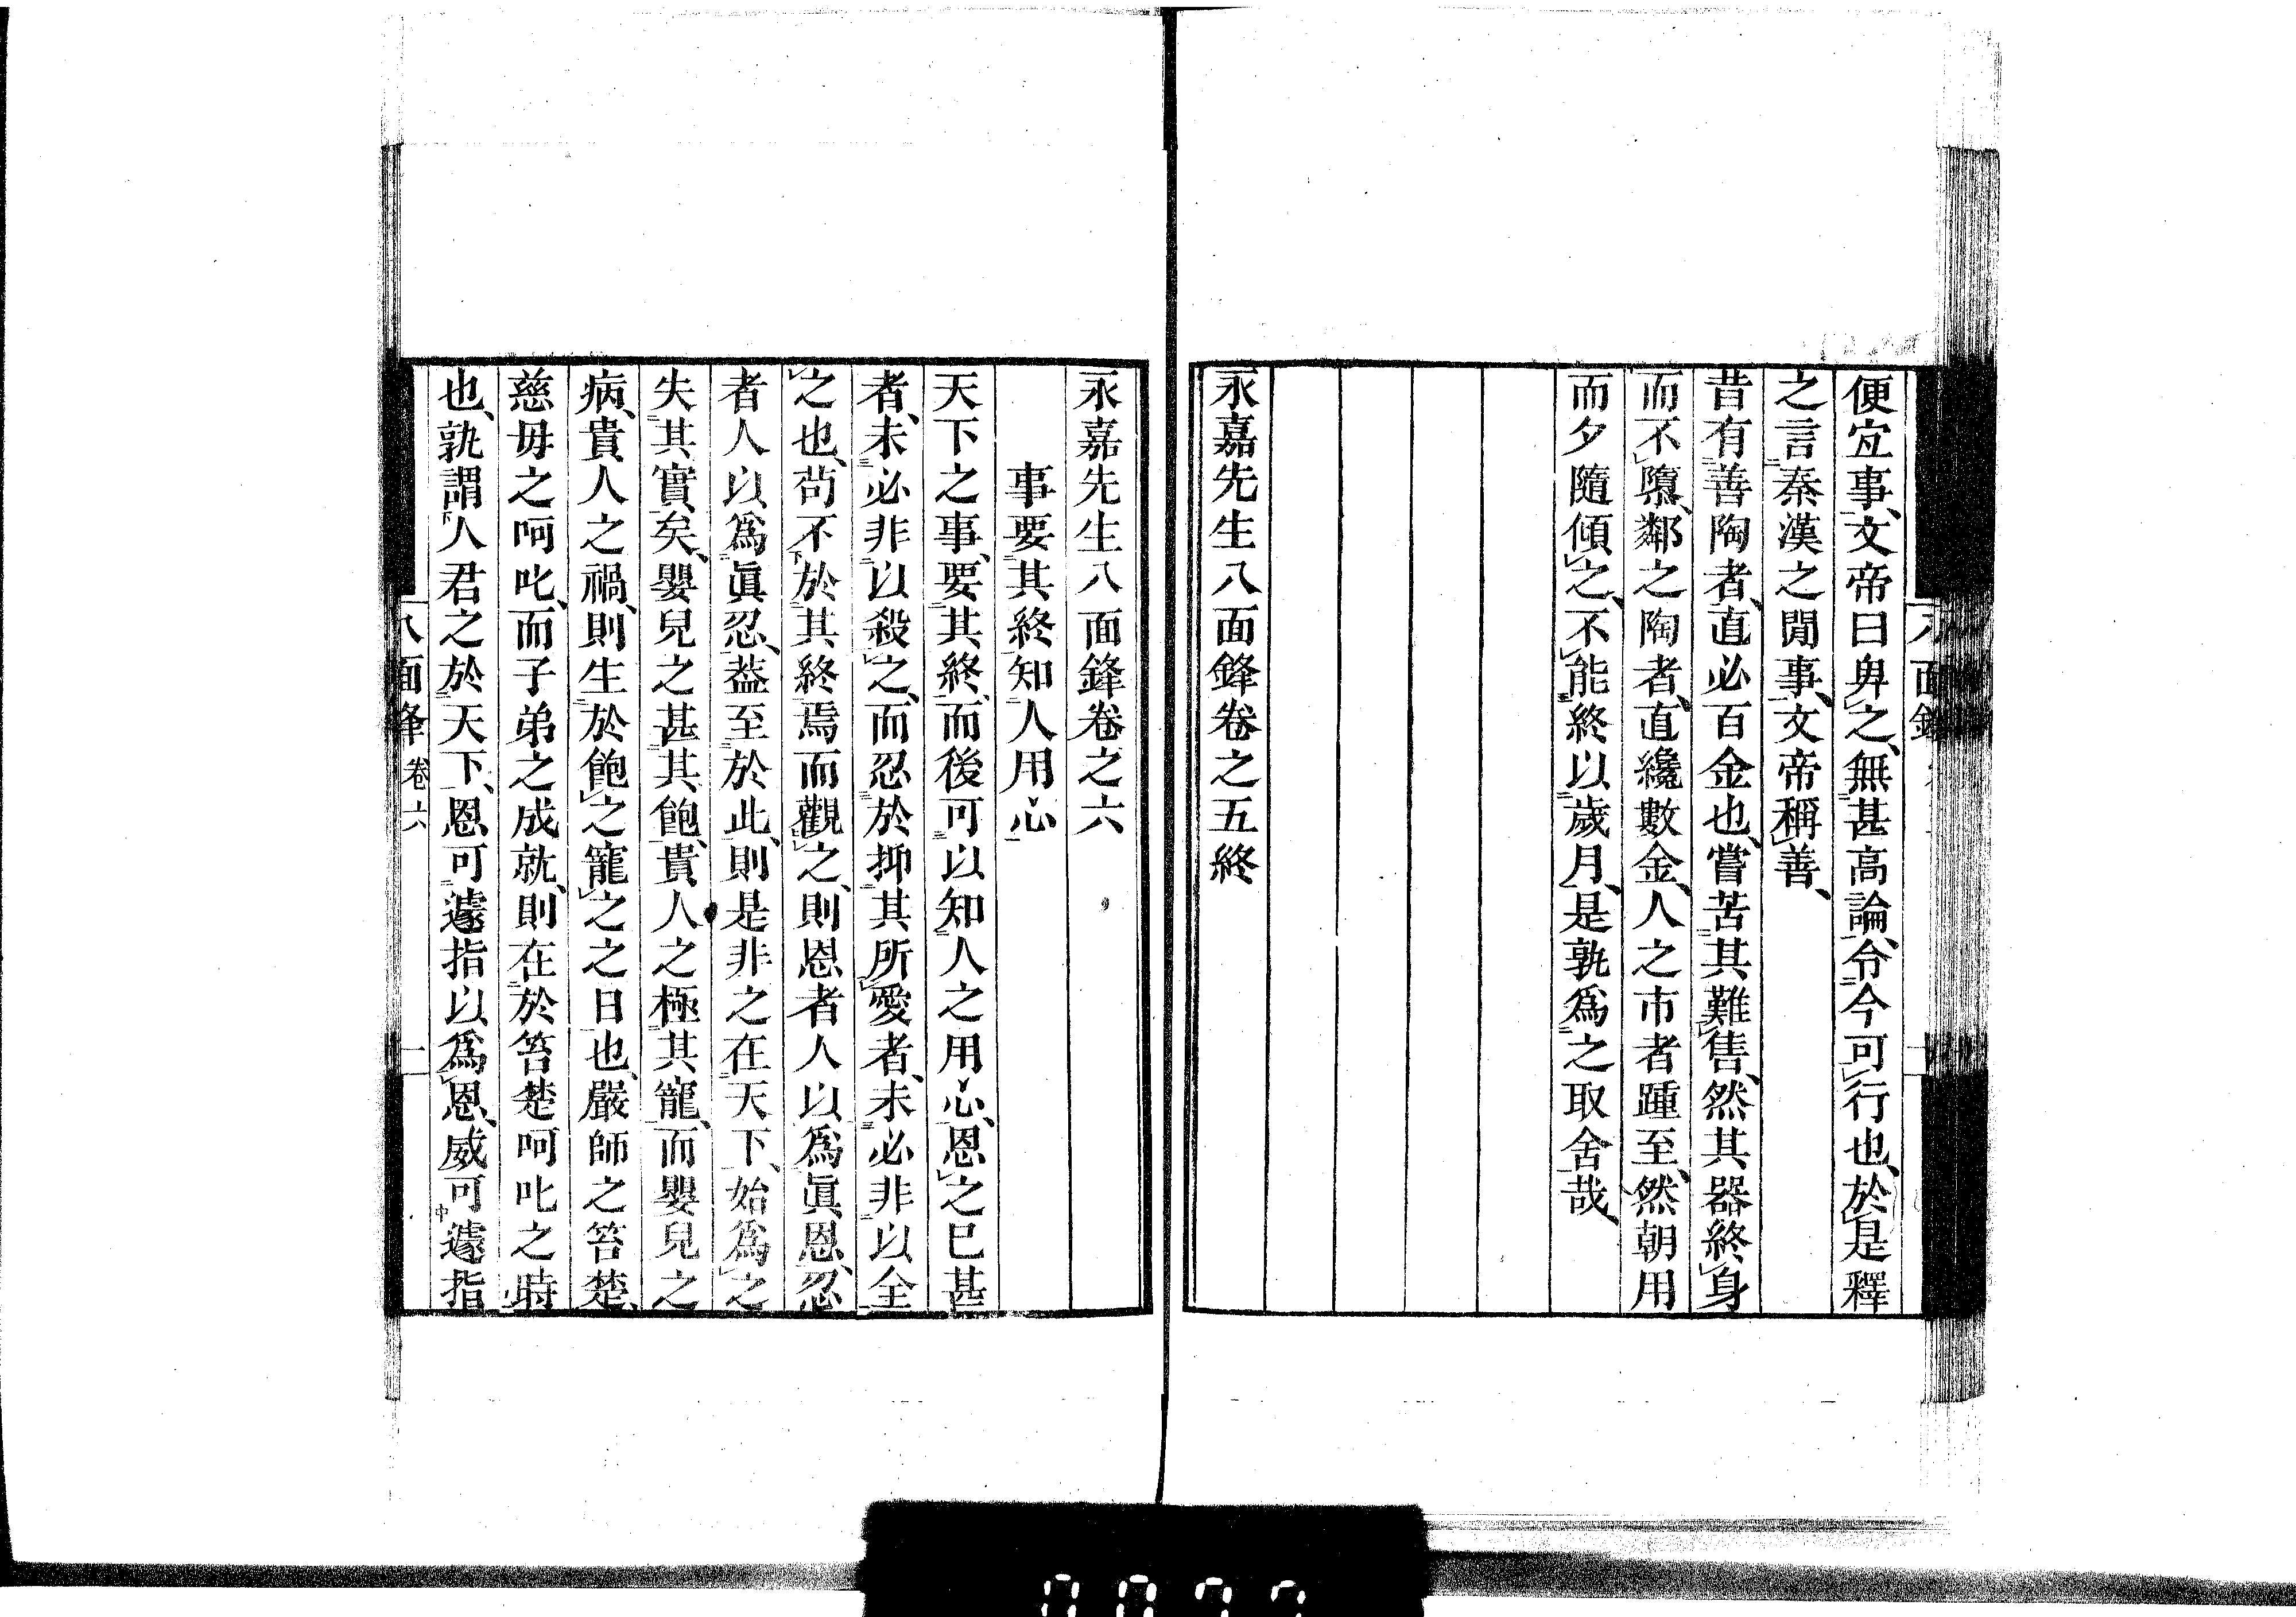 便宜事、文帝曰卑之、無甚高論、令今可行也、於是釋
之言秦漢之閒事、文帝稱善、
昔有善陶者、直必百金也、嘗苦其難售、然其器終身
而不隳、鄰之陶者、直纔數金、人之市者踵至、然朝用
而夕隨傾之、不能終以歲月、是孰爲之取舍哉、
永嘉先生八面鋒卷之五終
永嘉先生八面鋒卷之六
事要其終知人用心
天下之事、要其終、而後可以知人之用心、恩之已甚
者、未必非以殺之、而忍於抑其所愛者、未必非以全
之也、苟不於其終焉而觀之、則恩者人以爲眞恩、忍
者人以爲眞忍、葢至於此、則是非之在天下、始爲之
失其實矣、嬰兒之甚其飽、貴人之極其寵、而嬰兒之
病、貴人之禍、則生於飽之寵之之日也、嚴師之笞楚、
慈母之呵叱、而子弟之成就、則在於笞楚呵叱之時
也、孰謂人君之於天下、恩可遽指以爲恩、威可遽指
八面鋒 卷六 一